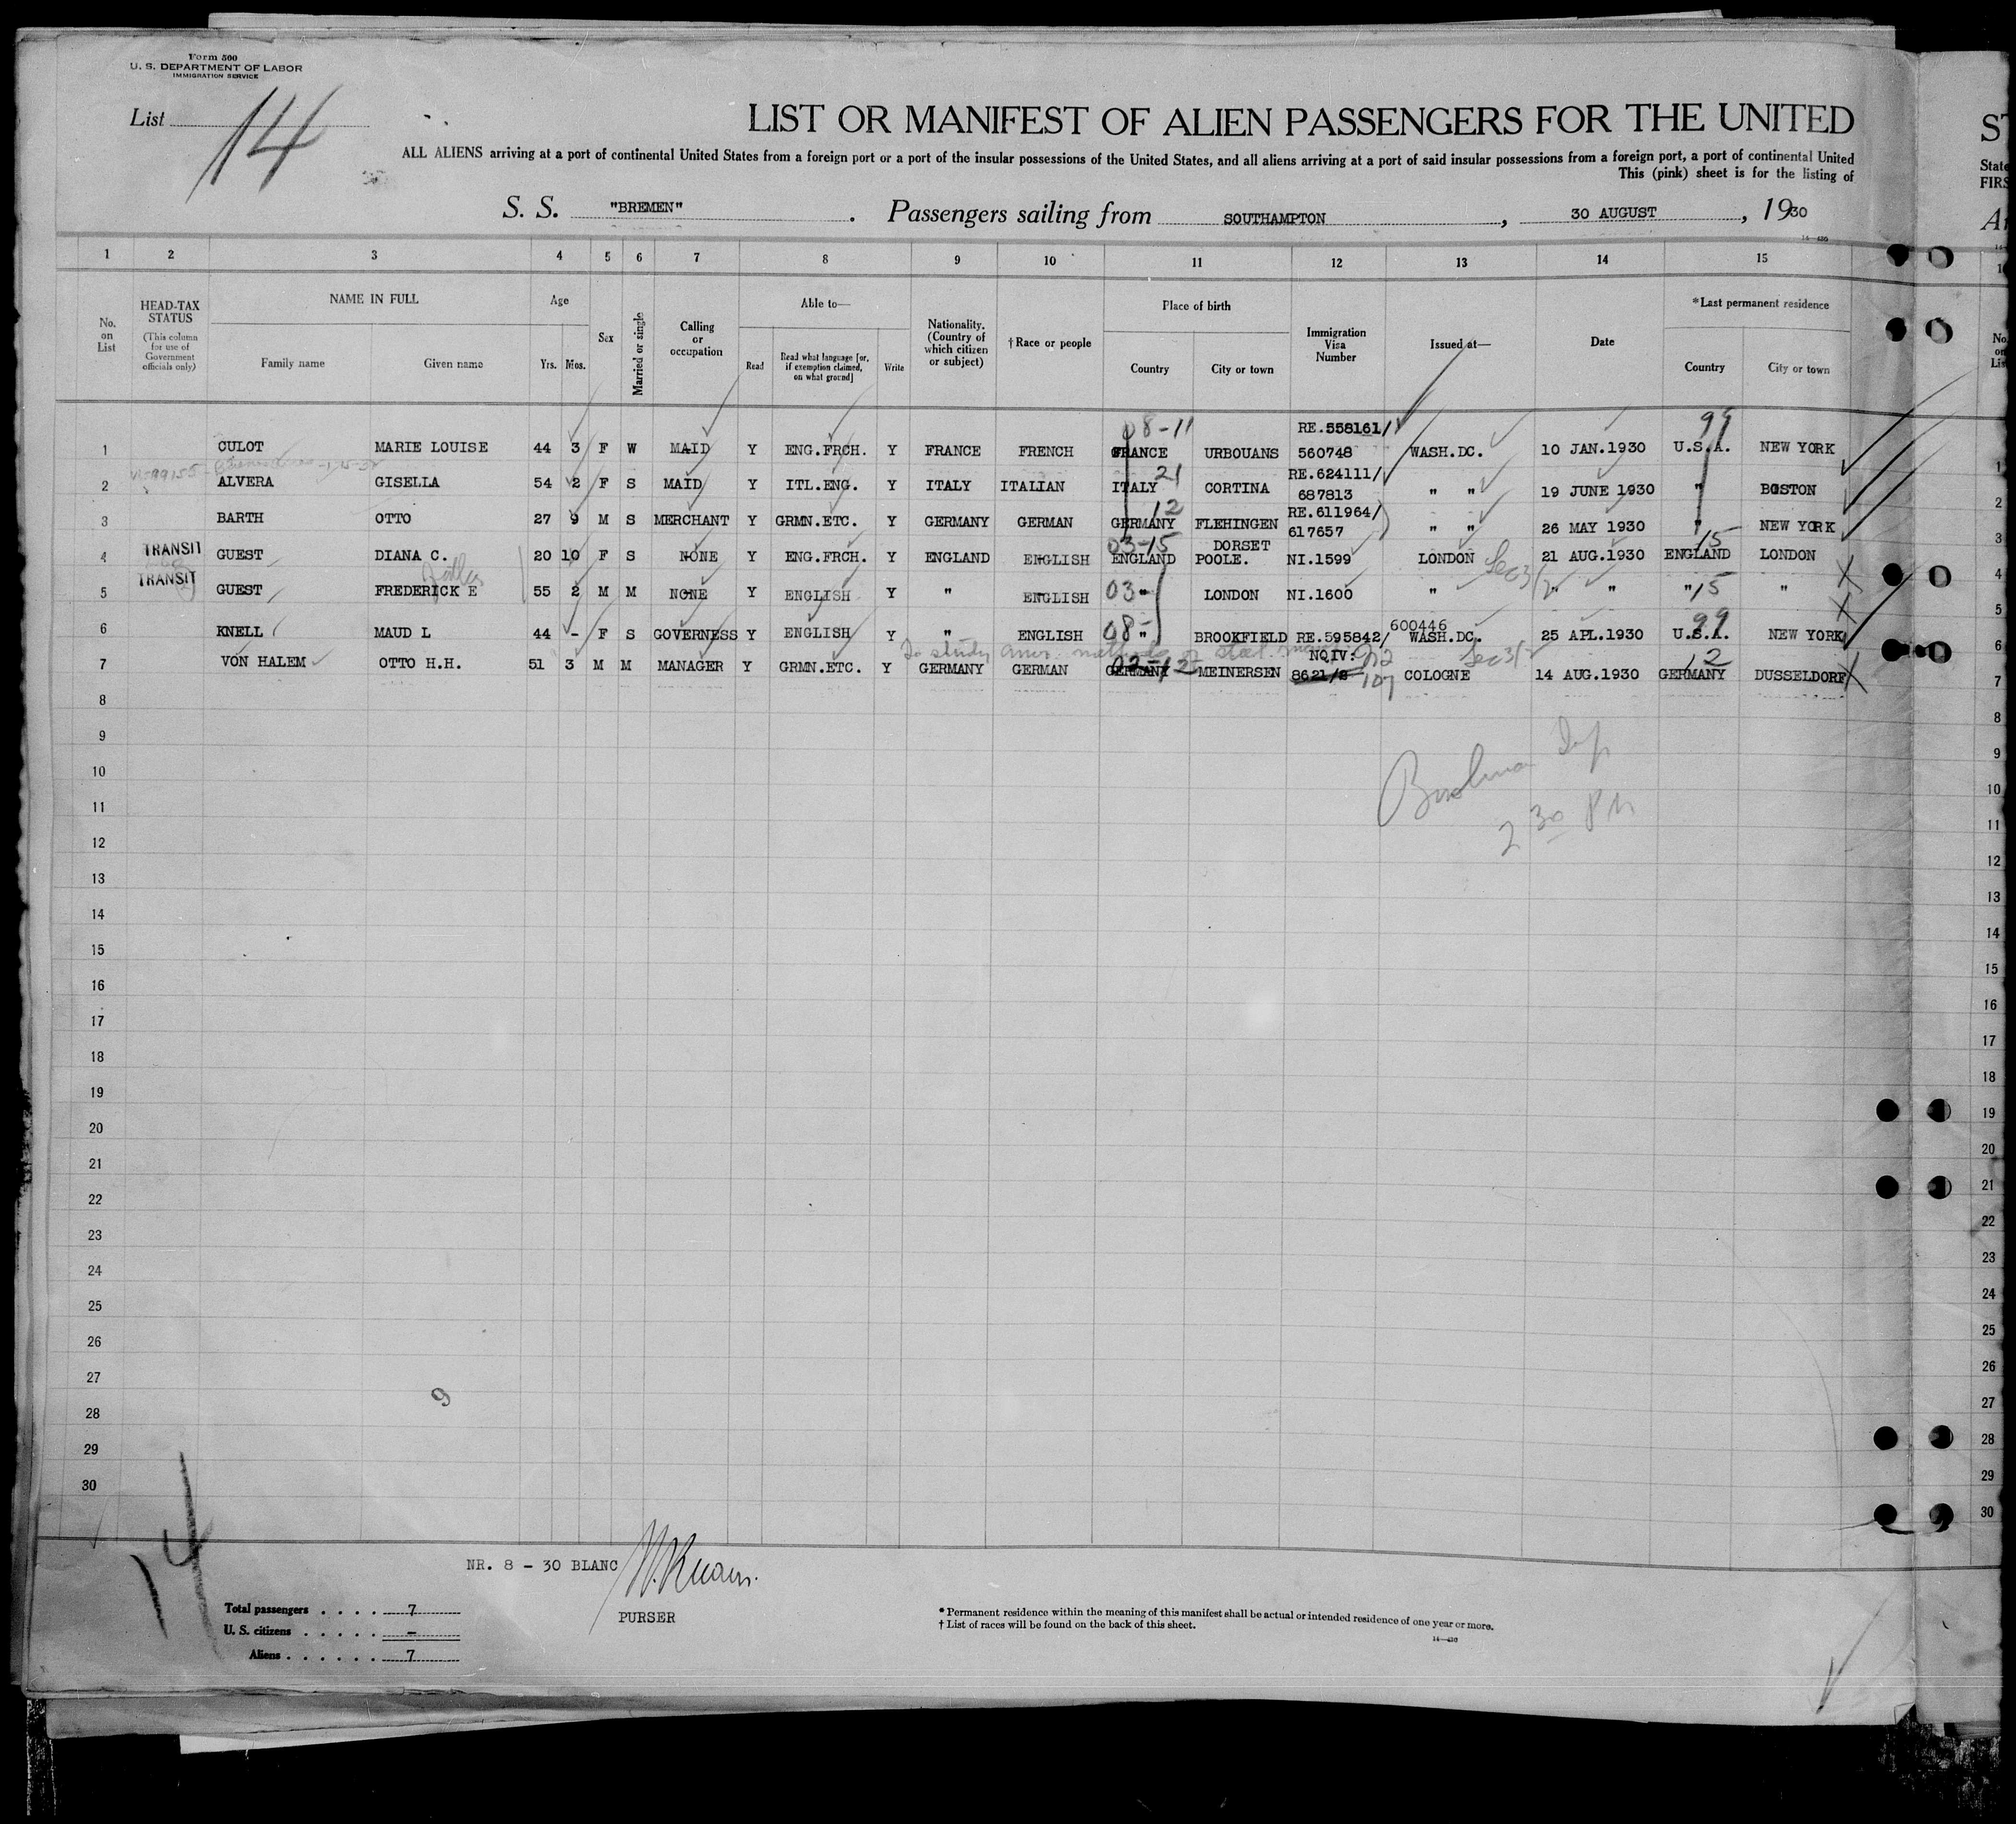 Form 500
U. S. DEPARTMENT OF LABOR
IMMIGRATION SERVICE
List 14
LIST OR MANIFEST OF ALIEN PASSENGERS FOR THE UNITED
ALL ALIENS arriving at a port of continental United States from a foreign port or a port of the insular possessions of the United States, and all aliens arriving at a port of said insular possessions from a foreign port, a port of continental United
This (pink) sheet is for the listing of
S. S. "BREMEN". Passengers sailing from SOUTHAMPTON, 30 AUGUST, 1930
14—430
1 2 3 4 5 6 7 8 9 10 11 12 13 14 15
No. on List
HEAD-TAX STATUS
(This column for use of Government officials only)
NAME IN FULL
Family name Given name
Age
Yrs. Mos.
Sex
Married or single
Calling or occupation
Able to—
Read
Read what language [or, if exemption claimed, on what ground]
Write
Nationality. (Country of which citizen or subject)
† Race or people
Place of birth
Country City or town
Immigration Visa Number
Issued at—
Date
*Last permanent residence
Country City or town
08-11 RE.558161/ 99
1 CULOT MARIE LOUISE 44 3 F W MAID Y ENG.FRCH. Y FRANCE FRENCH FRANCE URBOUANS 560748 WASH.DC. 10 JAN.1930 U.S.A. NEW YORK
21 RE.624111/
2 ALVERA GISELLA 54 2 F S MAID Y ITL.ENG. Y ITALY ITALIAN ITALY CORTINA 687813 " " 19 JUNE 1930 " BOSTON
12 RE.611964/
3 BARTH OTTO 27 9 M S MERCHANT Y GRMN.ETC. Y GERMANY GERMAN GERMANY FLEHINGEN 617657 " " 26 MAY 1930 " NEW YORK
TRANSIT 03-15 DORSET 15
4 GUEST DIANA C. 20 10 F S NONE Y ENG.FRCH. Y ENGLAND ENGLISH ENGLAND POOLE. NI.1599 LONDON 21 AUG.1930 ENGLAND LONDON
TRANSIT father Sec 3/2
5 GUEST FREDERICK E 55 2 M M NONE Y ENGLISH Y " ENGLISH 03 " LONDON NI.1600 " " " " 15 "
08- 600446 99
6 KNELL MAUD L 44 - F S GOVERNESS Y ENGLISH Y " ENGLISH " BROOKFIELD RE.595842/ WASH.DC. 25 APL.1930 U.S.A. NEW YORK
To study Amer. methods of steel NQIV: Sec 3/2
7 VON HALEM OTTO H.H. 51 3 M M MANAGER Y GRMN.ETC. Y GERMANY GERMAN GERMANY MEINERSEN 8621/2 107 COLOGNE 14 AUG.1930 GERMANY 12 DUSSELDORF
8
9
10
11
12
13
14
15
16
17
18
19
20
21
22
23
24
25
26
27
28
29
30
2 30 PM
9
14
NR. 8 - 30 BLANC
PURSER
Total passengers . . . . 7
U. S. citizens . . . . . -
Aliens . . . . . . 7
* Permanent residence within the meaning of this manifest shall be actual or intended residence of one year or more.
† List of races will be found on the back of this sheet.
14—430
State
FIRS
1
2
3
4
5
6
7
8
9
10
11
12
13
14
15
16
17
18
19
20
21
22
23
24
25
26
27
28
29
30